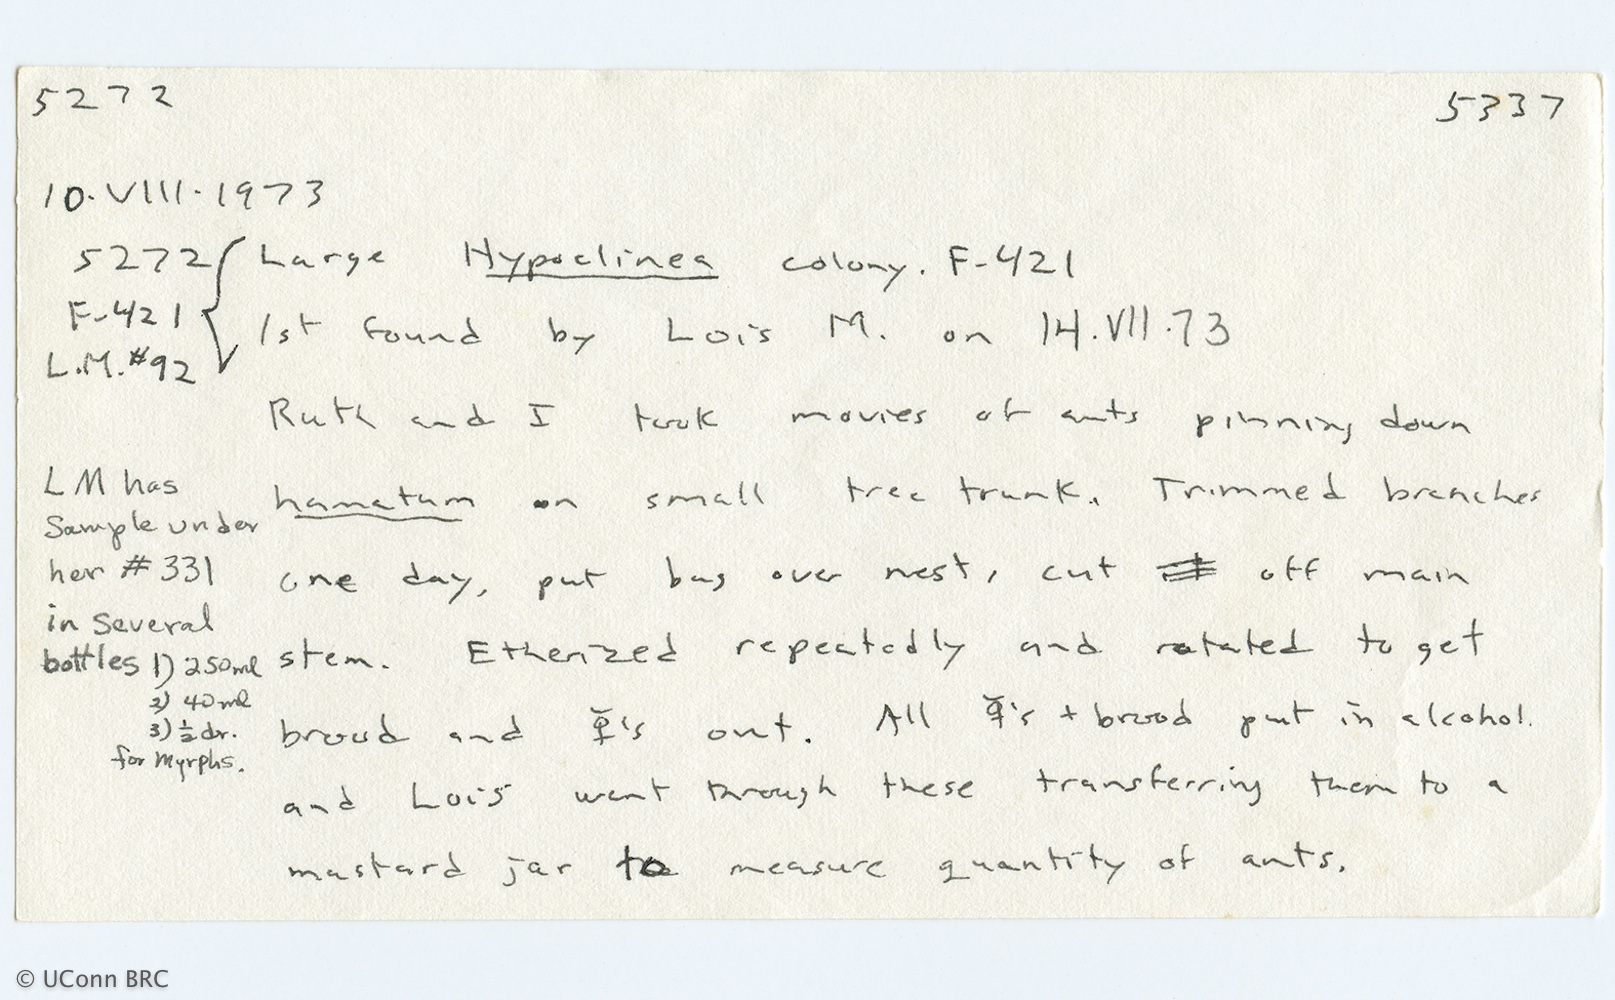 5272 5337
10.VIII.1973
5272 Large Hypoclinea colony. F-421
F-421
L.M.#92
1st found by Lois M. on 14.VII.73
Ruth and I took movies of ants pinning down
hamatum on small tree trunk. Trimmed branches
one day, put bag over nest, cut off main
stem. Etherized repeatedly and rotated to get
brood and ☿'s out. All ☿'s + brood put in alcohol.
and Lois went through these transferring them to a
mustard jar to measure quantity of ants.
LM has
Sample under
her #331
in several
bottles 1) 250ml
2) 40ml
3) ½ dr.
for Myrphs.
© UConn BRC